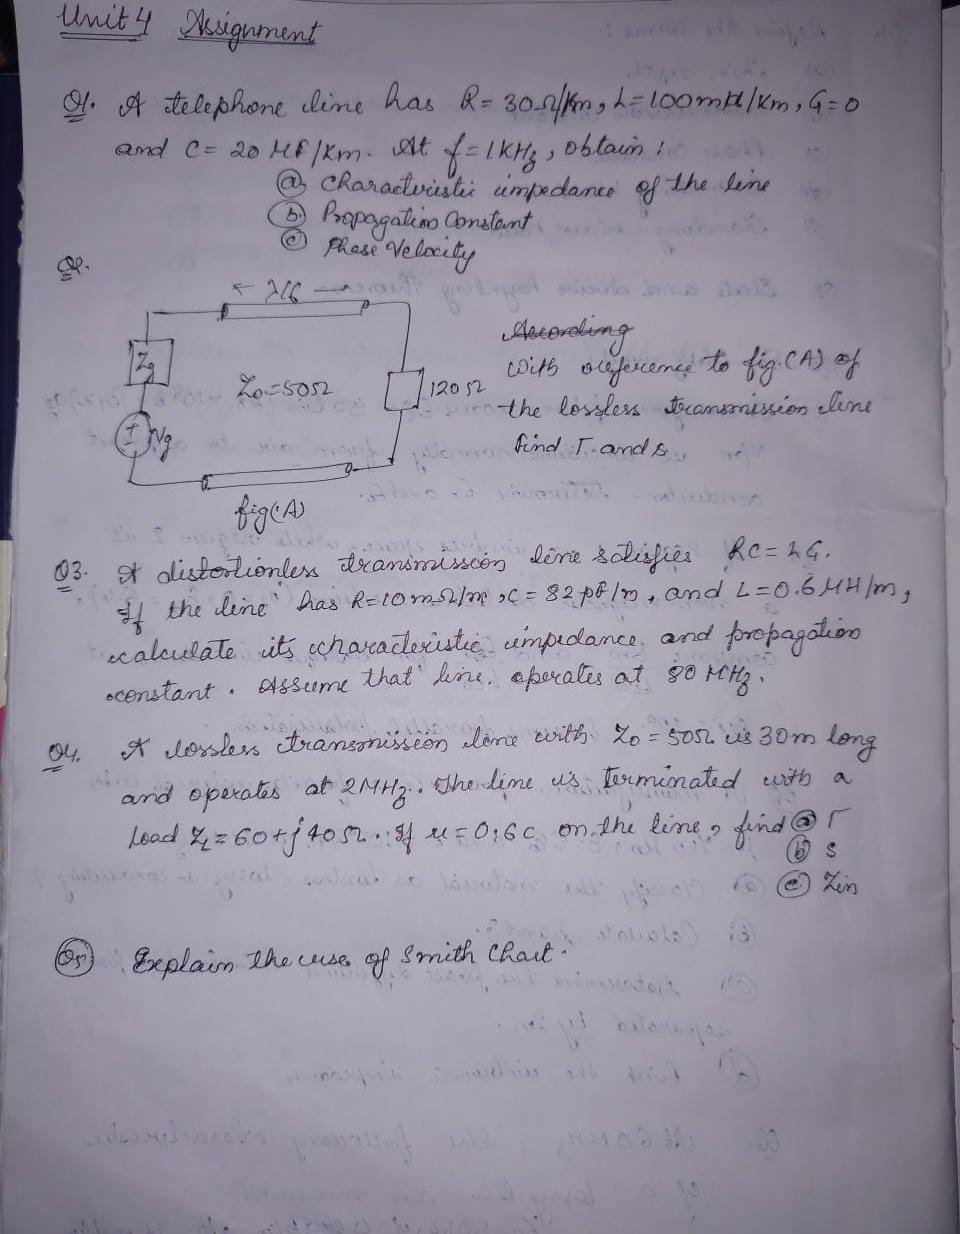 Unit 4 Assignment
Q1. A telephone line has R = 30 Ω/Km, L = 100 mH/Km, G = 0
and C = 20 µF/Km. At f = 1 KHz, obtain :
(a) Characteristic impedance of the line
(b) Propagation Constant
(c) Phase Velocity
Q2.
← λ/6 →
According
With reference to fig.(A) of
the lossless transmission line
find Γ and s
Zg
Z0 = 50Ω
120 Ω
Vg
fig(A)
Q3. A distortionless transmission line satisfies RC = LG.
If the line has R = 10 mΩ/m, C = 82 pF/m, and L = 0.6 µH/m,
calculate its characteristic impedance and propagation
constant. Assume that line operates at 80 MHz.
Q4. A lossless transmission line with Z0 = 50Ω is 30m long
and operates at 2MHz. The line is terminated with a
Load ZL = 60 + j40Ω. If u = 0.6c on the line, find (a) Γ
(b) s
(c) Zin
Q5) Explain the use of Smith Chart.